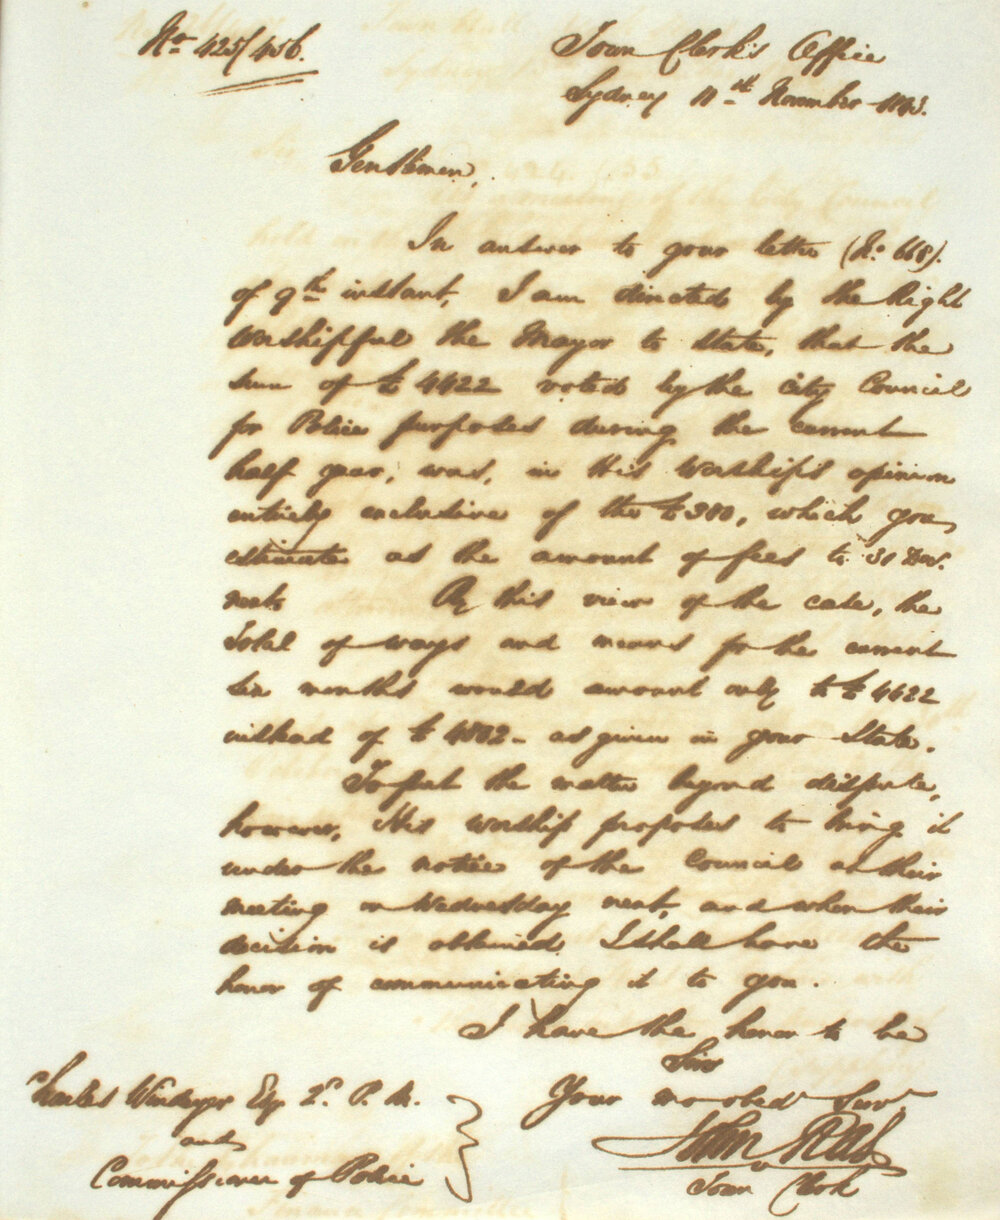 No 425/456.
Town Clerk's Office
Sydney 11th November 1843.
Gentlemen,
In answer to your letter (No 668).
of 9th instant, I am directed by the Right
Worshipful the Mayor to state, that the
sum of £4422 voted by the City Council
for Police purposes during the current
half year, was, in His Worship's opinion
entirely inclusive of the £380, which you
estimate as the amount of fees to 31 Decr.
next. By this view of the case, the
total of ways and means for the current
six months would amount only to £4422
instead of £4802 - as given in your State.
To put the matter beyond dispute,
however, His Worship proposes to bring it
under the notice of the Council at their
meeting on Wednesday next, and when their
decision is obtained I shall have the
honor of communicating it to you.
I have the honor to be
Sirs
Your most obedt Servt
John
Town Clerk
Charles Windeyer Esq P. M.
and
Commissioner of Police